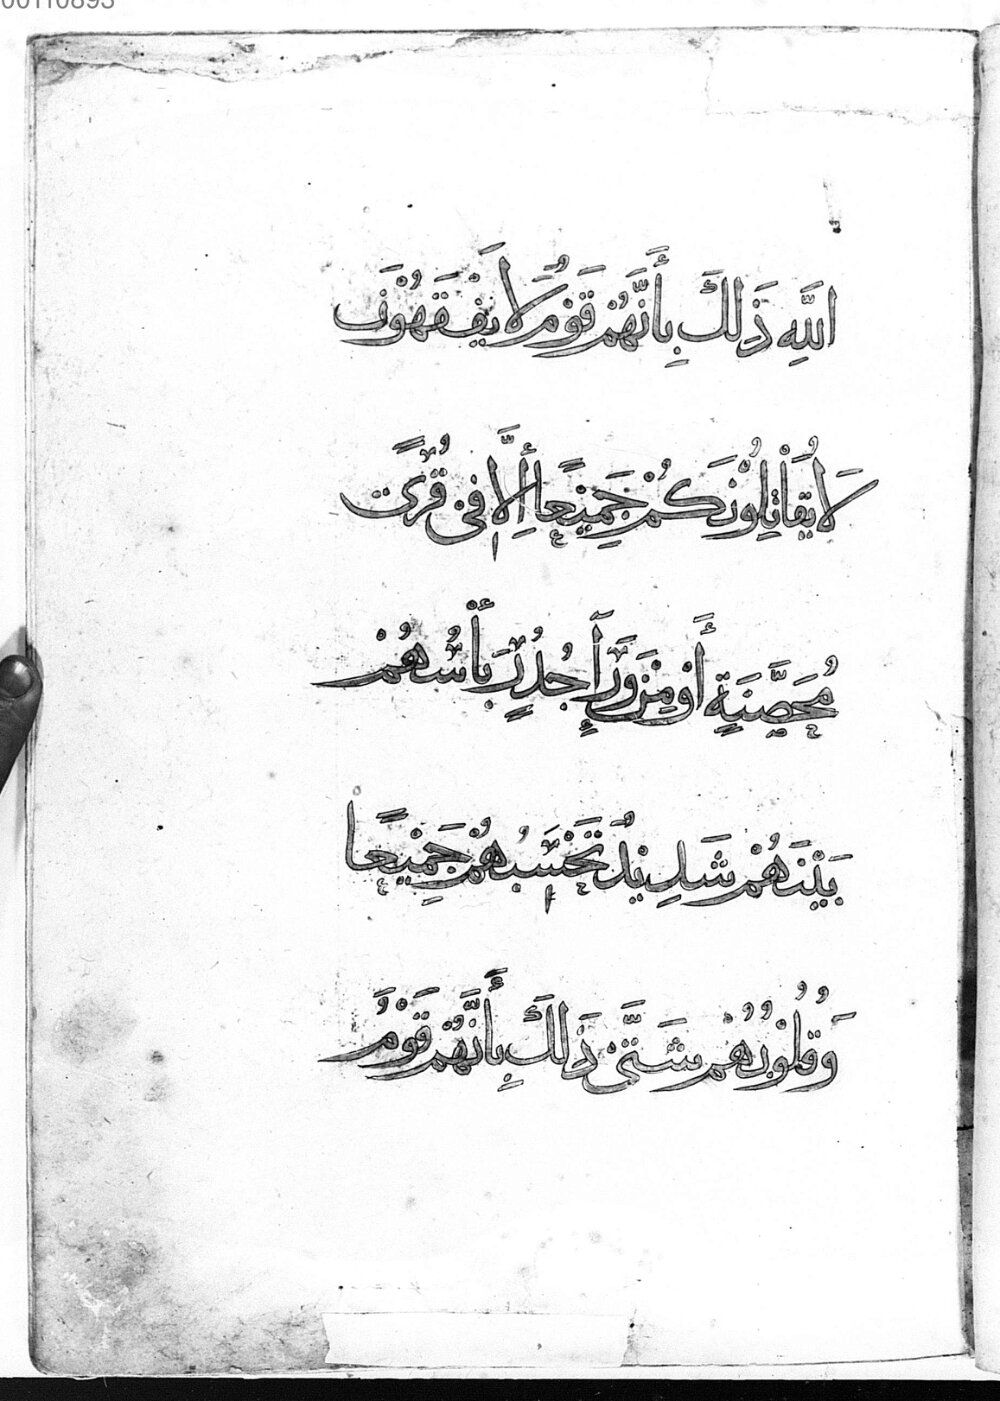 00110893
اللَّهِ ذَلِكَ بِأَنَّهُمْ قَوْمٌ لَا يَفْقَهُونَ
لَا يُقَاتِلُونَكُمْ جَمِيعًا إِلَّا فِي قُرًى
مُحَصَّنَةٍ أَوْ مِنْ وَرَآءِ جُدُرٍ بَأْسُهُمْ
بَيْنَهُمْ شَدِيدٌ تَحْسَبُهُمْ جَمِيعًا
وَقُلُوبُهُمْ شَتَّى ذَلِكَ بِأَنَّهُمْ قَوْمٌ